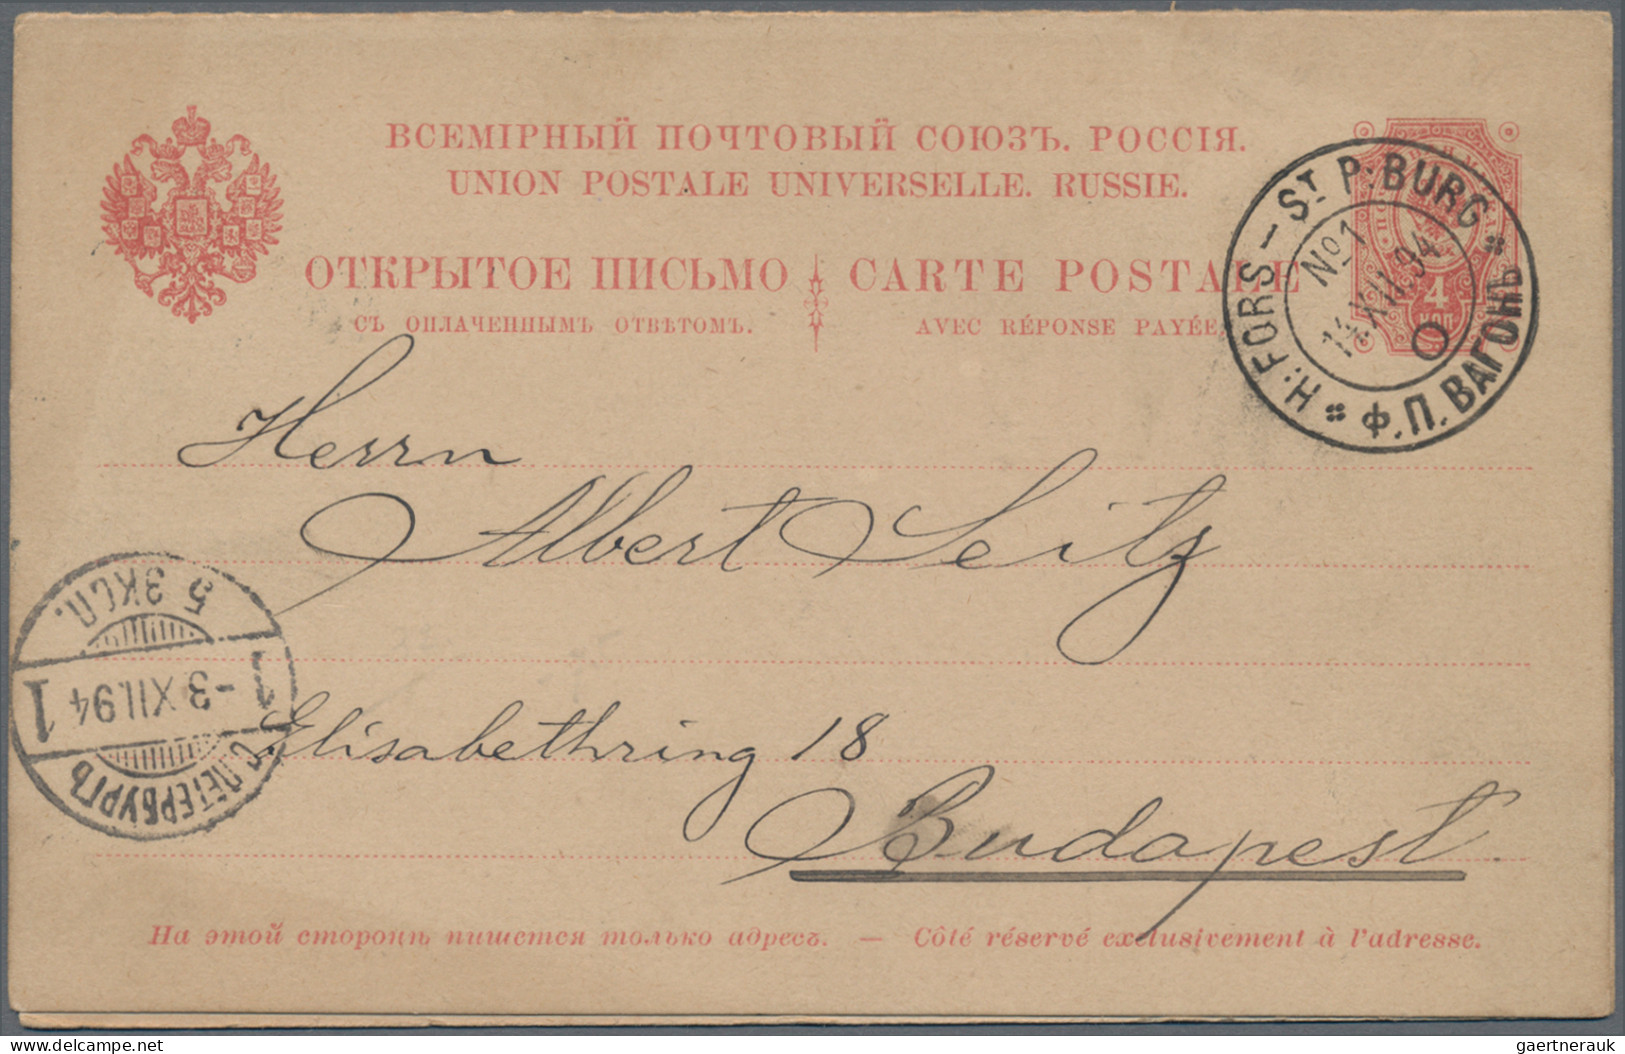 ВСЕМІРНЫЙ ПОЧТОВЫЙ СОЮЗЪ. РОССІЯ.
UNION POSTALE UNIVERSELLE. RUSSIE.
ОТКРЫТОЕ ПИСЬМО
CARTE POSTALE
СЪ ОПЛАЧЕННЫМЪ ОТВѢТОМЪ.
AVEC RÉPONSE PAYÉE
H:FORS – Sᵀ P:BURG
Nº1
14.XII.94
O
Ф.П. ВАГОНЪ
4
КОП
Herrn
Albert Seitz
5 ЭКСП.
1 -3 XII.94 1
С.ПЕТЕРБУРГЪ
Elisabethring 18
Budapest
На этой сторонѣ пишется только адресъ. — Côté réservé exclusivement à l'adresse.
delcampe.net
gaertnerauk